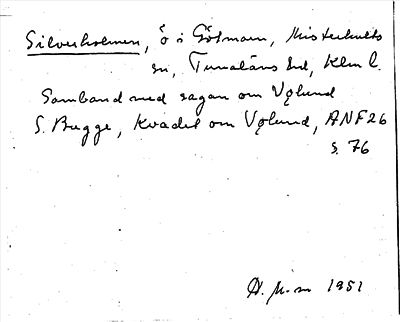 Silverholmen, ö i Götmaren, Misterhults
sn, Tunaläns hd, Klm l.
Samband med sagan om Vølund
S. Bugge, Kvadet om Vølund, ANF 26
s. 76
1951